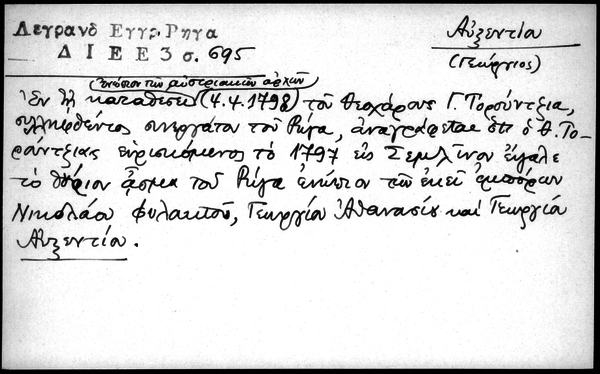 Λεγρανδ Εγγρ. Ρηγα
Αὐξεντίου
Δ Ι Ε Ε 3 σ. 695
(Γεώργιος)
ἐνώπιον τῶν αὐστριακῶν ἀρχῶν
Ἐν τῇ καταθέσει (4.4.1798) τοῦ Θεοχάρους Γ. Τορούντζια,
συλληφθέντος συνεργάτου τοῦ Ρήγα, ἀναγράφεται ὅτι ὁ Θ. Το-
ρούντζιας εὑρισκόμενος τὸ 1797 εἰς Σεμλῖνον ἔψαλε
τὸ θούριον ἆσμα τοῦ Ρήγα ἐνώπιον τῶν ἐκεῖ ἐμπόρων
Νικολάου Φυλακτοῦ, Γεωργίου Ἀθανασίου καὶ Γεωργίου
Αὐξεντίου.